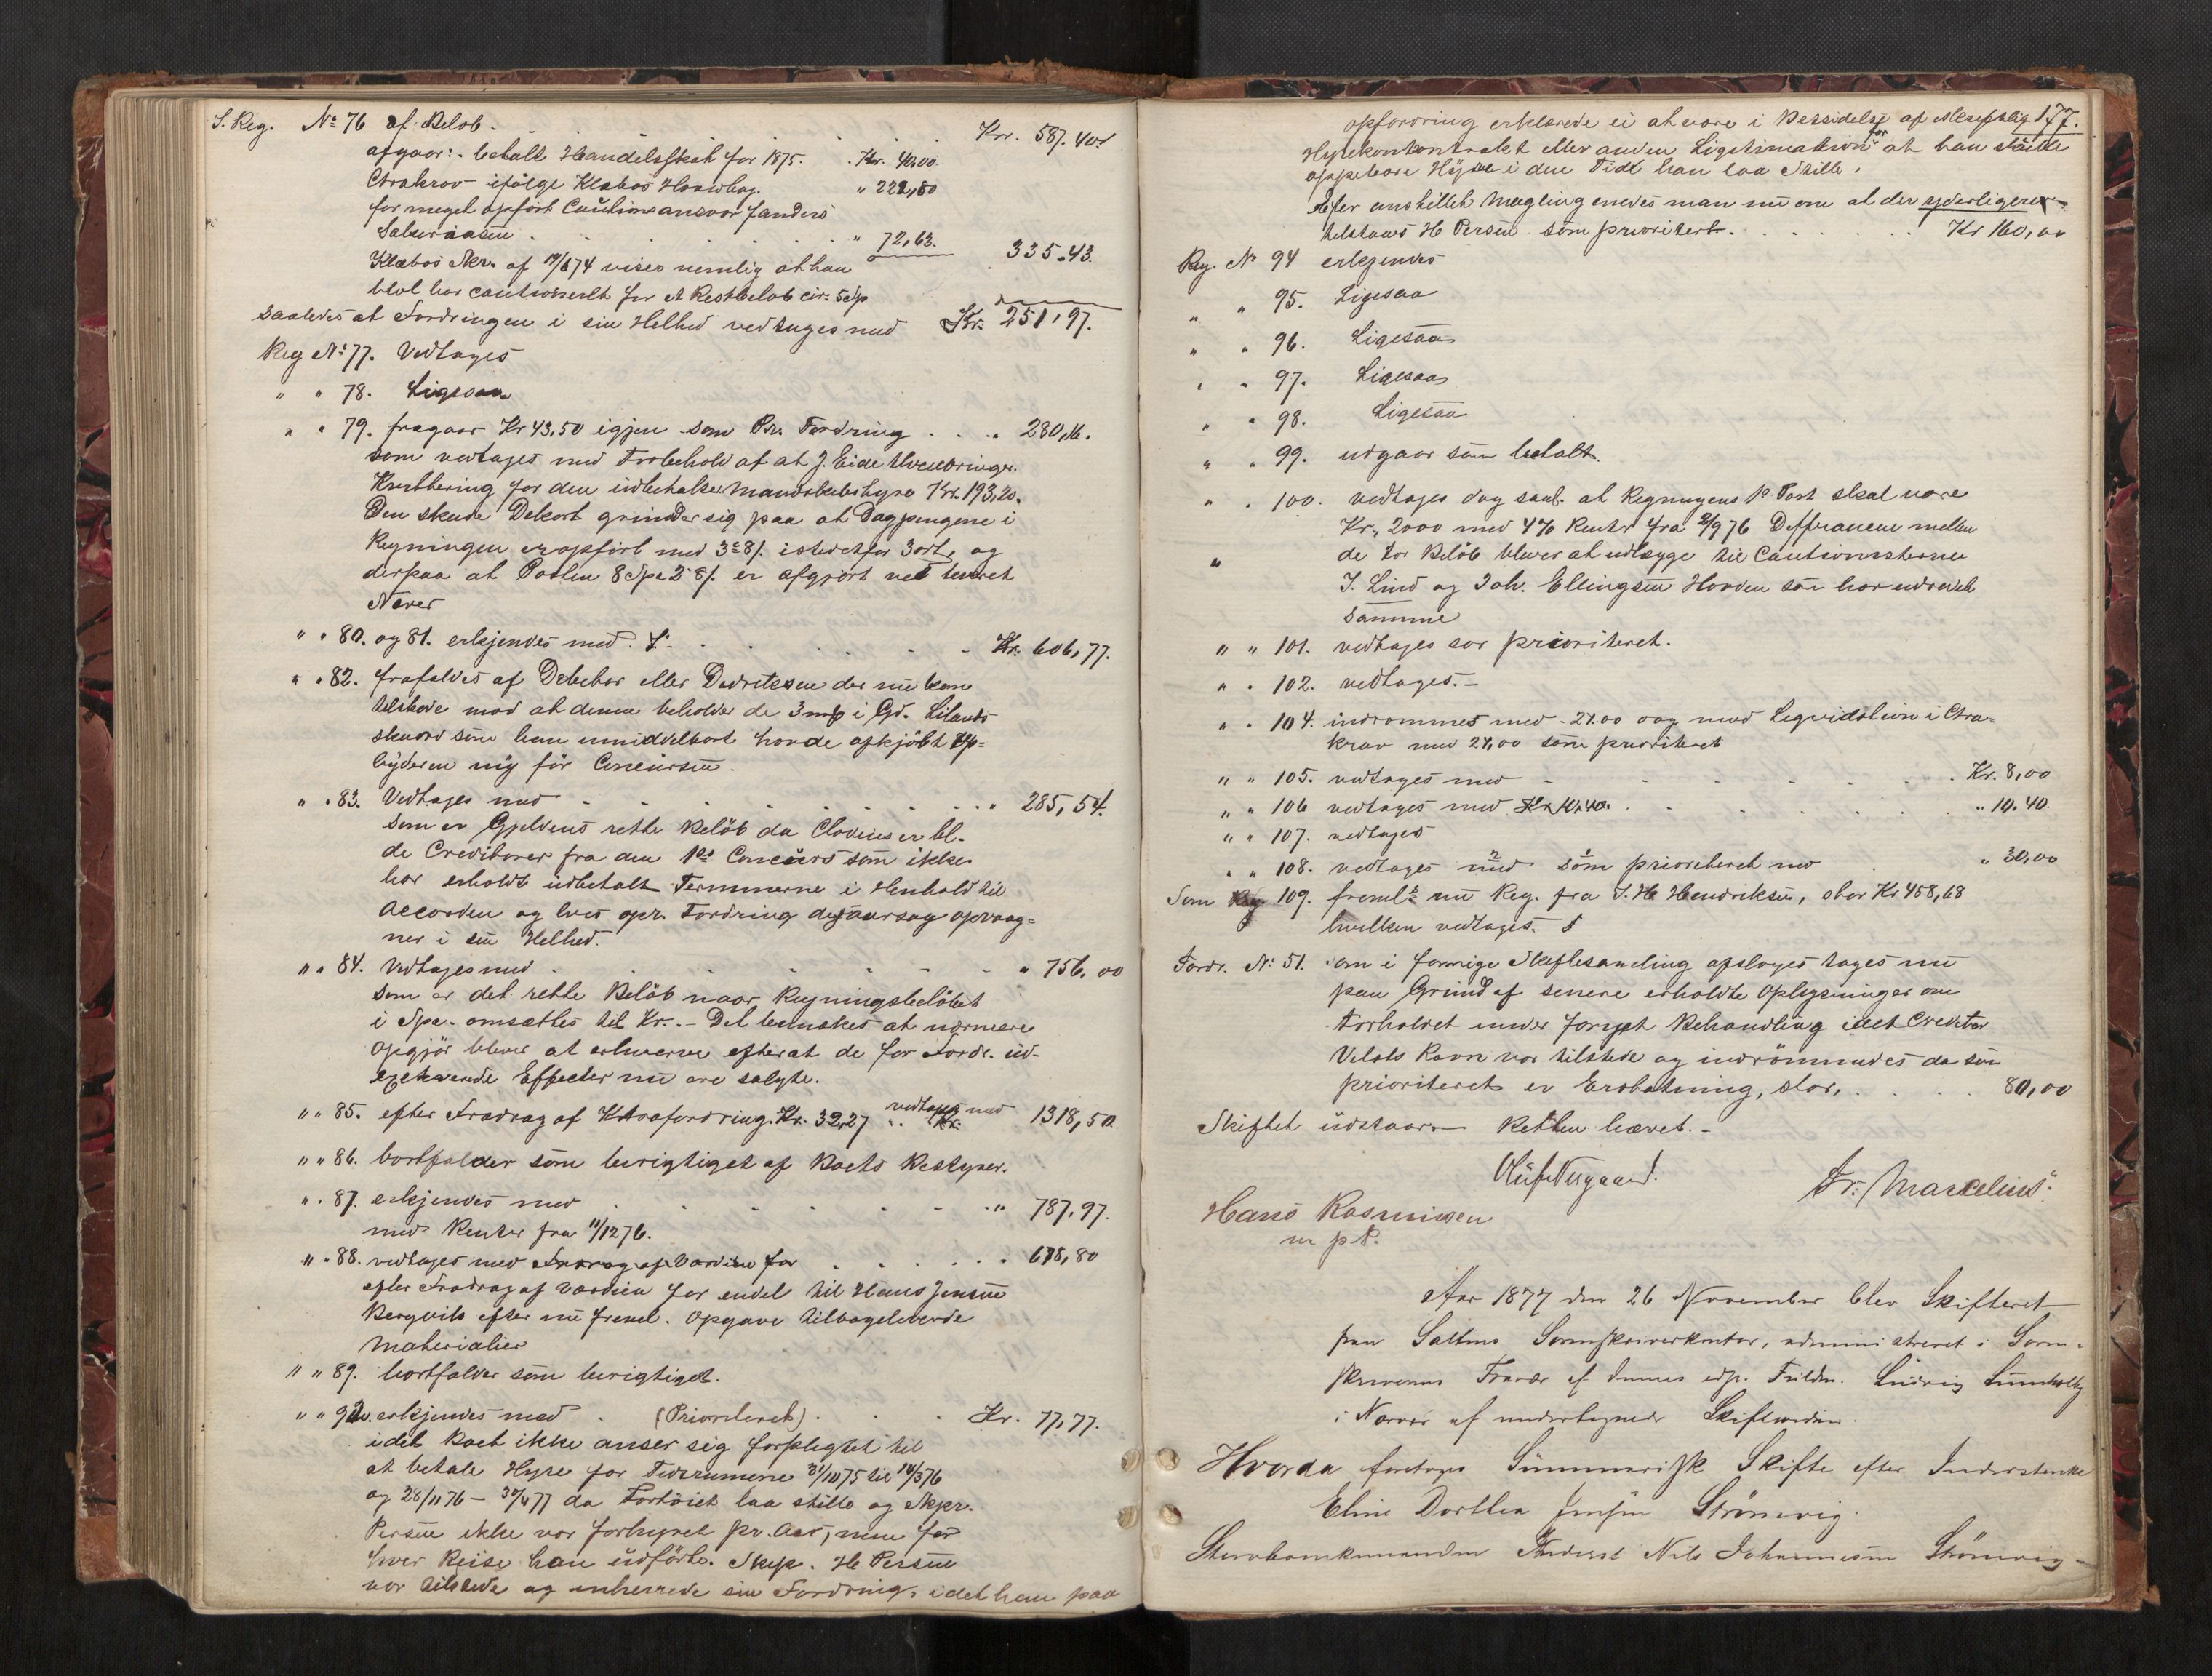 S. Reg. No 76 af Belöb. Kr. 587.40
afgaar: betalt Handelsskat for 1875. Kr. 40.00
Contrakrav ifölge Klæbos " 222,80
for meget opfört Cautionsansvar f anders
72,63. 335.43.
Klæbos Skr. af 19/8 74 viser nemlig at han
blot har cautioneret for et Restbelöb cir. 5 Sp
saaledes at Fordringen i sin Helhed vedtages med Kr. 251,97.
Reg No 77. Vedtages
" " 78. Ligesaa
" " 79. fragaar Kr 43,50 igjen som Pr. Fordring . . " 280,16.
som vedtages med Forbehold af at J. Eide
Kvittering for den udbetalte Mandskabshyre Kr. 193,20.
Den skeede Dekort grunder sig paa at Dagpengene i
Regningen er opfört med 3 8/. istedetfor 3 ort, og
derpaa at Posten 8 Spd 2 8/. er afgjort ved leveret
Næver
" " 80. og 81. erkjendes med Kr. 606,77.
" " 82. frafaldes af Debitor eller Dedriksen der nu kom
tilstede mod at denne beholder de 3 i Gd. Lilands
skuord som han umiddelbart havde afkjöbt Op=
byderen ny för Concursen.
" " 83. Vedtages med " 285,54.
som er Gjeldens rette Belöb da Clodius er bl.
de Creditorer fra den 1ste Concurs som ikke
har erholdt udbetalt Terminerne i Henhold til
Accorden og hvis opr. Fordring desaarsag opvaag=
ner i sin Helhed.
" " 84. Vedtages med " 756.00
som er det rette Belöb naar Regningsbelöbet
i Spd. omsættes til Kr. - Det bemærkes at nærmere
Opgjör bliver at erhverve efterat de for Fordr. ud-
Effecter nu ere solgte.
" " 85. efter Fradrag af Kontrafordring Kr. 32,27 vedtages med Kr. 1318,50.
" " 86. bortfalder som berigtiget af Boets Bestyrer.
" " 87. erkjendes med " 787,97.
med Renter fra 11/12 76.
" " 88. vedtages med Fradrag af Værdien for " 678,80
efter Fradrag af Værdien for endel til Hans Jensen
Bergvik efter nu freml. Opgave tilbageleverede
Materialier
" " 89. bortfalder som berigtiget.
" " 92. erkjendes med (Prioriteret) Kr. 77,77.
idet Boet ikke anser sig forpligtet til
at betale Hyre for Tidsrummene 31/10 75 til 14/3 76
og 28/11 76 - 30/4 77 da Fartöiet laa stille og Skpr.
Persen ikke var forhyret pr. Aar, men for
hver Reise han udförte. Skpr. H Persen
var tilstede og inherrede sin Fordring, idet han paa
177.
opfordring erklærede ei at være i Besiddelse af
Hyrekontontrakt eller anden Legitimation for at han skulde
oppebære Hyre i den Tid han laa stille.
Efter anstillet Mægling enedes man nu om at der yderligere
tilstaaes H Persen som prioritert . . . Kr 160,00
Reg. No 94 erkjendes
" " 95. Ligesaa
" " 96. Ligesaa
" " 97. Ligesaa
" " 98. Ligesaa
" " 99. udgaar som betalt.
" " 100. vedtages dog saal. at Regningens 1e Post skal være
Kr. 2000 med 4% Renter fra 2/9 76 Differancen mellem
" de to Belöb bliver at udlægge til Cautionisterne
J. Lind og Joh. Ellingsen Hovden som har udredet
samme
" " 101. vedtages som prioriteret.
" " 102. vedtages. -
" " 104. indrommes med 24.00 dog med Liqvidation i Ctra=
krav med 24,00 som prioriteret
" " 105. vedtages med - Kr. 8,00
" " 106 vedtages med Kr 10.40. " 10.40.
" " 107. vedtages
" " 108. vedtages med som prioriteret med " 30,00
Som Reg. 109. fremlt nu Reg. fra J. H Hendriksen, stor Kr 458,68
hvilken vedtages.
Fordr. No 51. om i forrige Skiftesamling afsloges tages nu
paa Grund af senere erholdte Oplysninger om
Forholdet under fornyet Behandling idet Creditor
Ravn var tilstede og indrömmedes da som
prioriteret en Erstatning, stor, . . . 80,00
Skiftet udstaar Retten hævet. -
Oluf Nergaard. Fr: Marcelius.
Hans Rasmusen
m p P.
Aar 1877 den 26 November blev Skifteret
paa Saltens Sorenskriverkontor, administreret i Soren=
skriverens Fravær af dennes edsv. Fuldm. Ludvig Lumholtz
i Nærvær af undertegnede Skiftevidner.
Hvorda foretoges Summarisk Skifte efter Inderstenke
Eline Dorthea Jensen Strömvig.
Stervbomkmanden Inderst Nils Johannesen Strömvig -